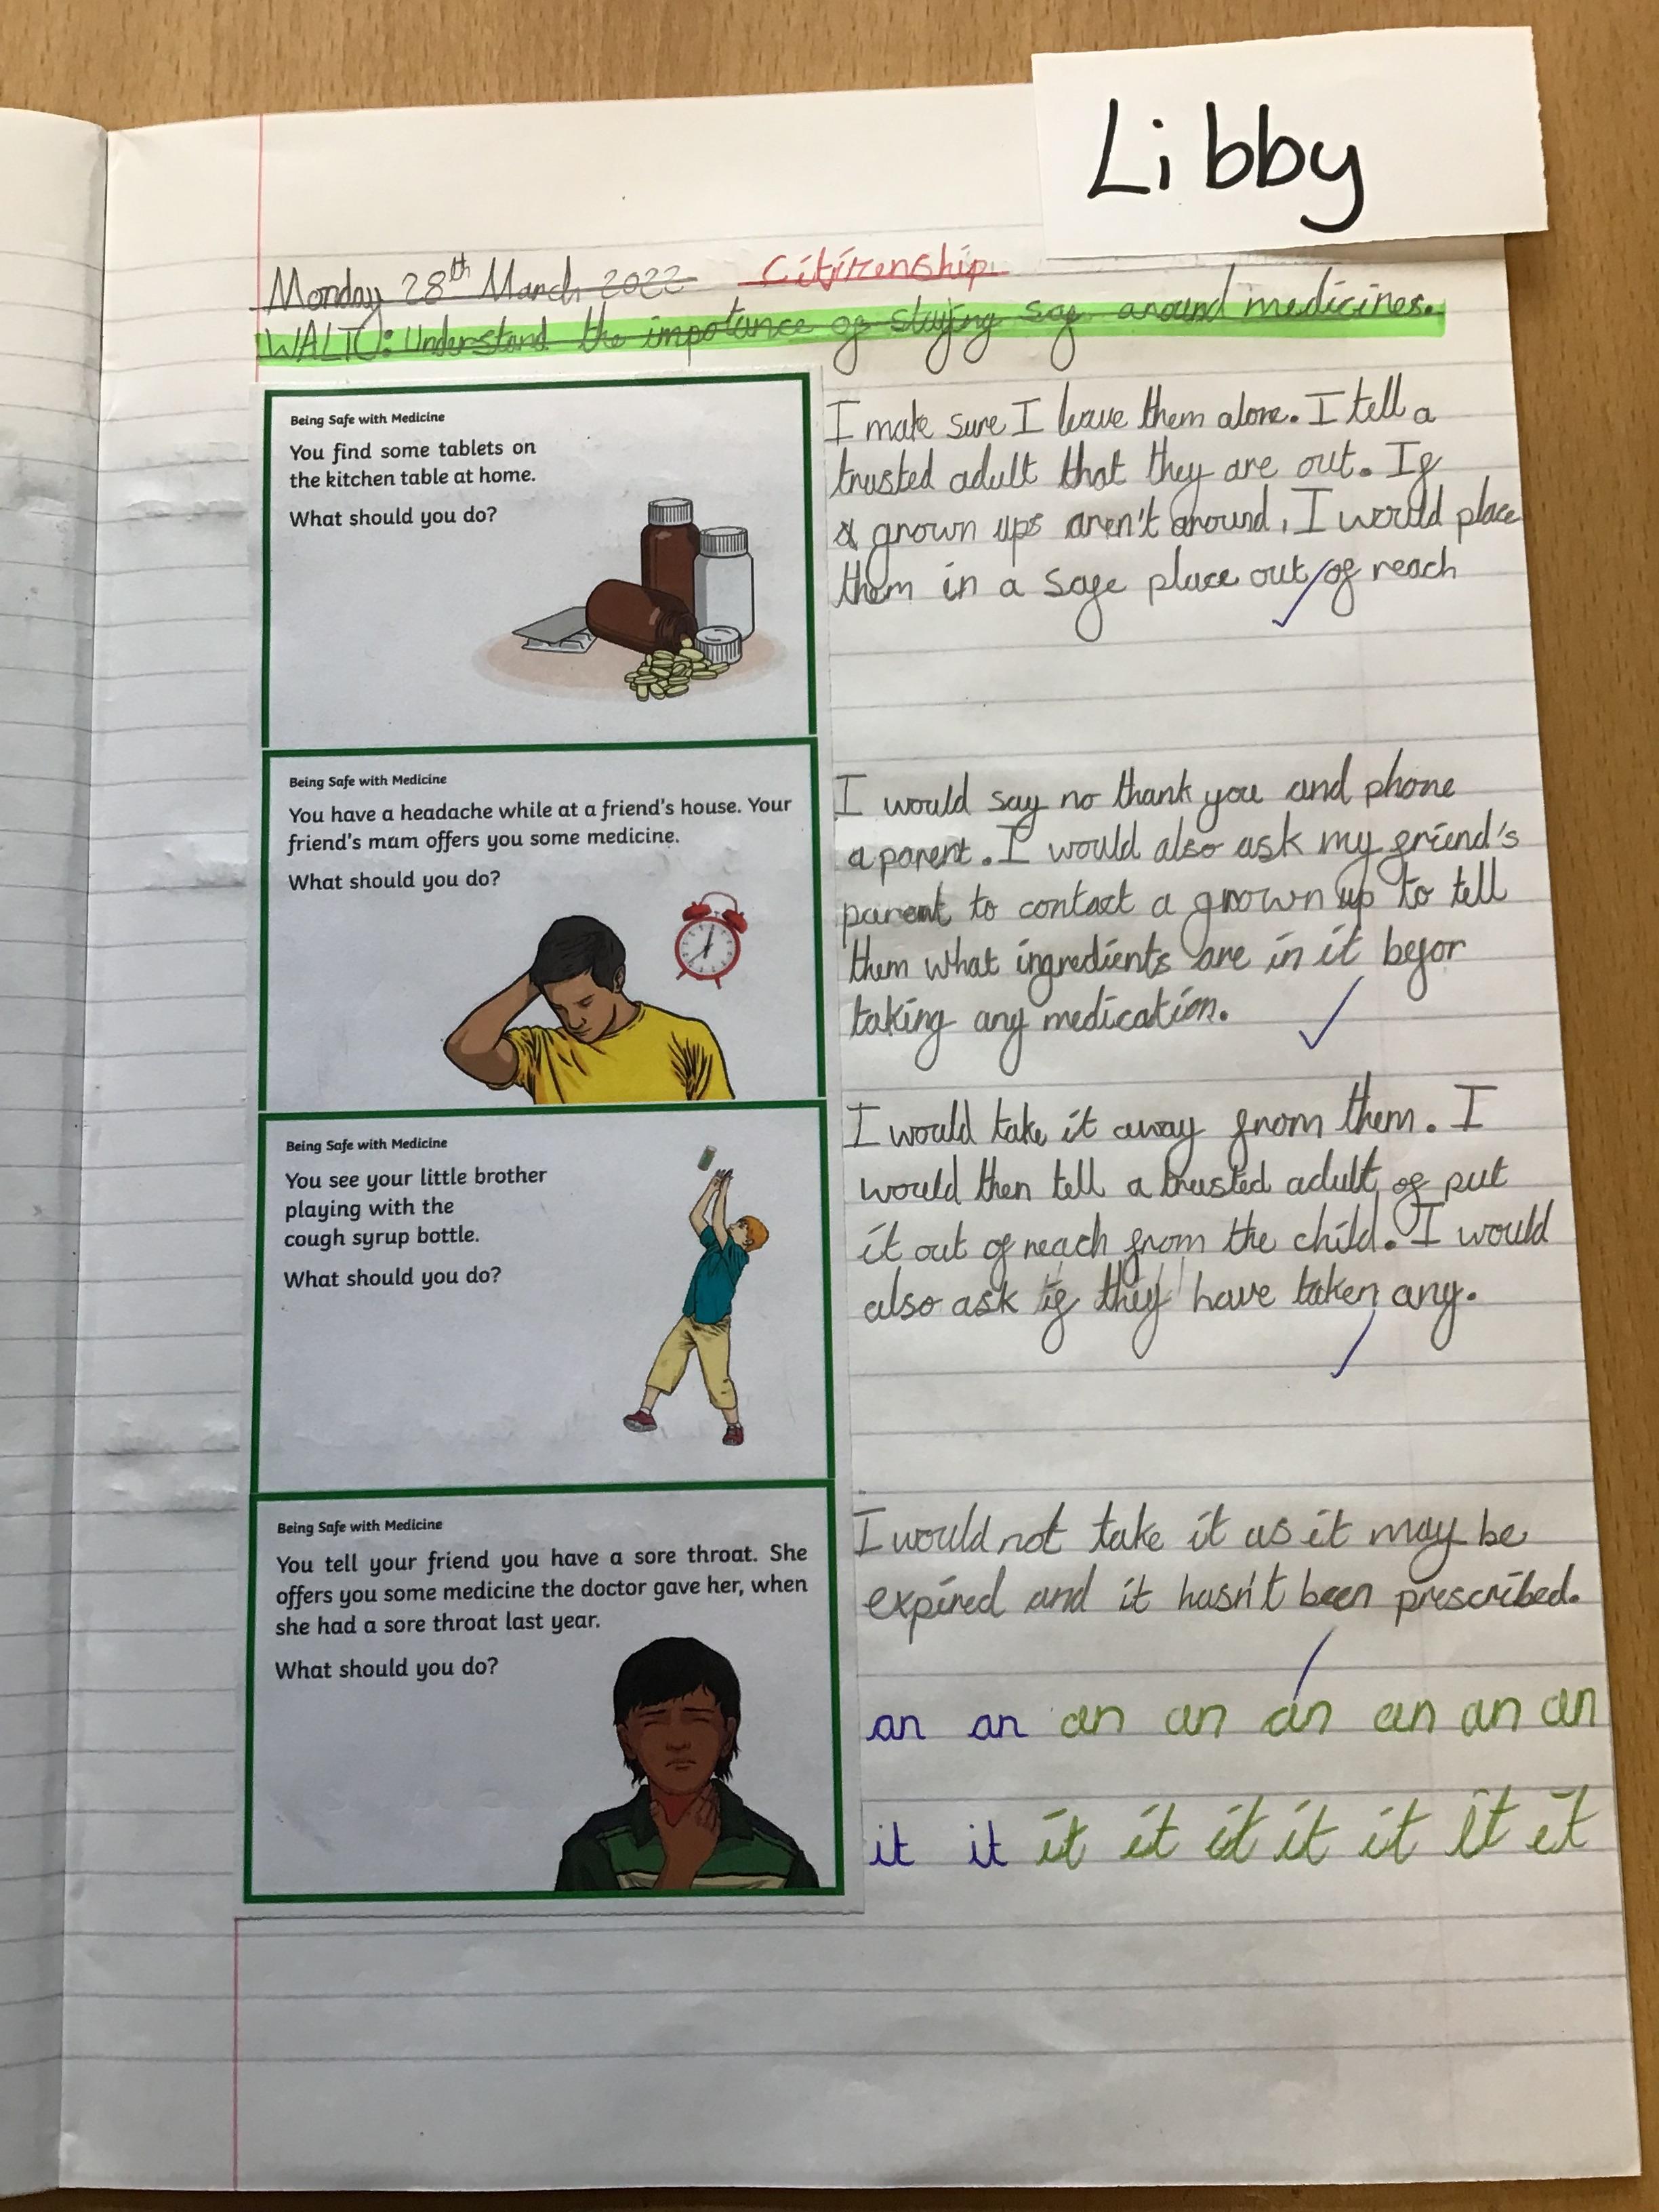 Libby
Monday 28th March 2022 Citizenship
WALTO: Understand the impotance of staying saf around medicines.
Being Safe with Medicine
You find some tablets on
the kitchen table at home.
What should you do?
I make sure I leave them alone. I tell a
trusted adult that they are out. If
grown ups aren't around, I would place
them in a safe place out of reach
Being Safe with Medicine
You have a headache while at a friend's house. Your
friend's mum offers you some medicine.
What should you do?
I would say no thank you and phone
a parent. I would also ask my friend's
parent to contact a grown up to tell
them what ingredients are in it befor
taking any medication.
Being Safe with Medicine
You see your little brother
playing with the
cough syrup bottle.
What should you do?
I would take it away from them. I
would then tell a trusted adult of put
it out of reach from the child. I would
also ask if they have taken any.
Being Safe with Medicine
You tell your friend you have a sore throat. She
offers you some medicine the doctor gave her, when
she had a sore throat last year.
What should you do?
I would not take it as it may be
expired and it hasn't been prescribed.
an an an an an an an an
it it it it it it it it it